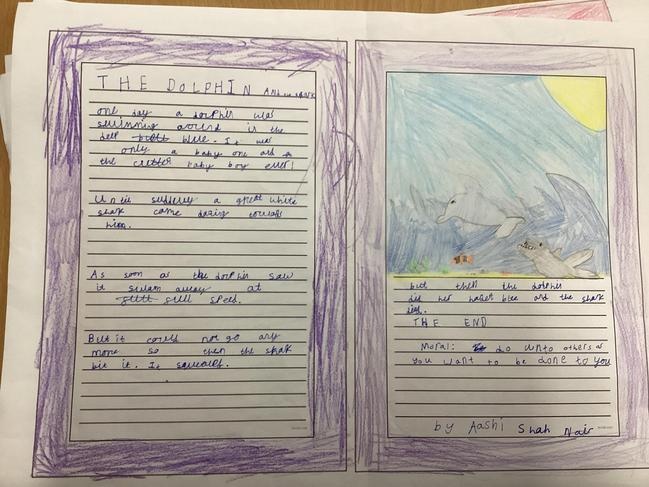 THE DOLPHIN And the shark
one day a dolphin was
swimming around in the
deep blue. It was
only a baby one and
the cutest baby boy ever!
Until suddenly a great white
shark came dazing towards
him.
As soon as the dolphin saw
it swam away at
full speed.
But it could not go any
more so then the shak
bit it. It squealed.
but then the dolphin
did her and the shark
died.
THE END
Moral: do unto others as
you want to be done to you
by Aashi Shah Nair